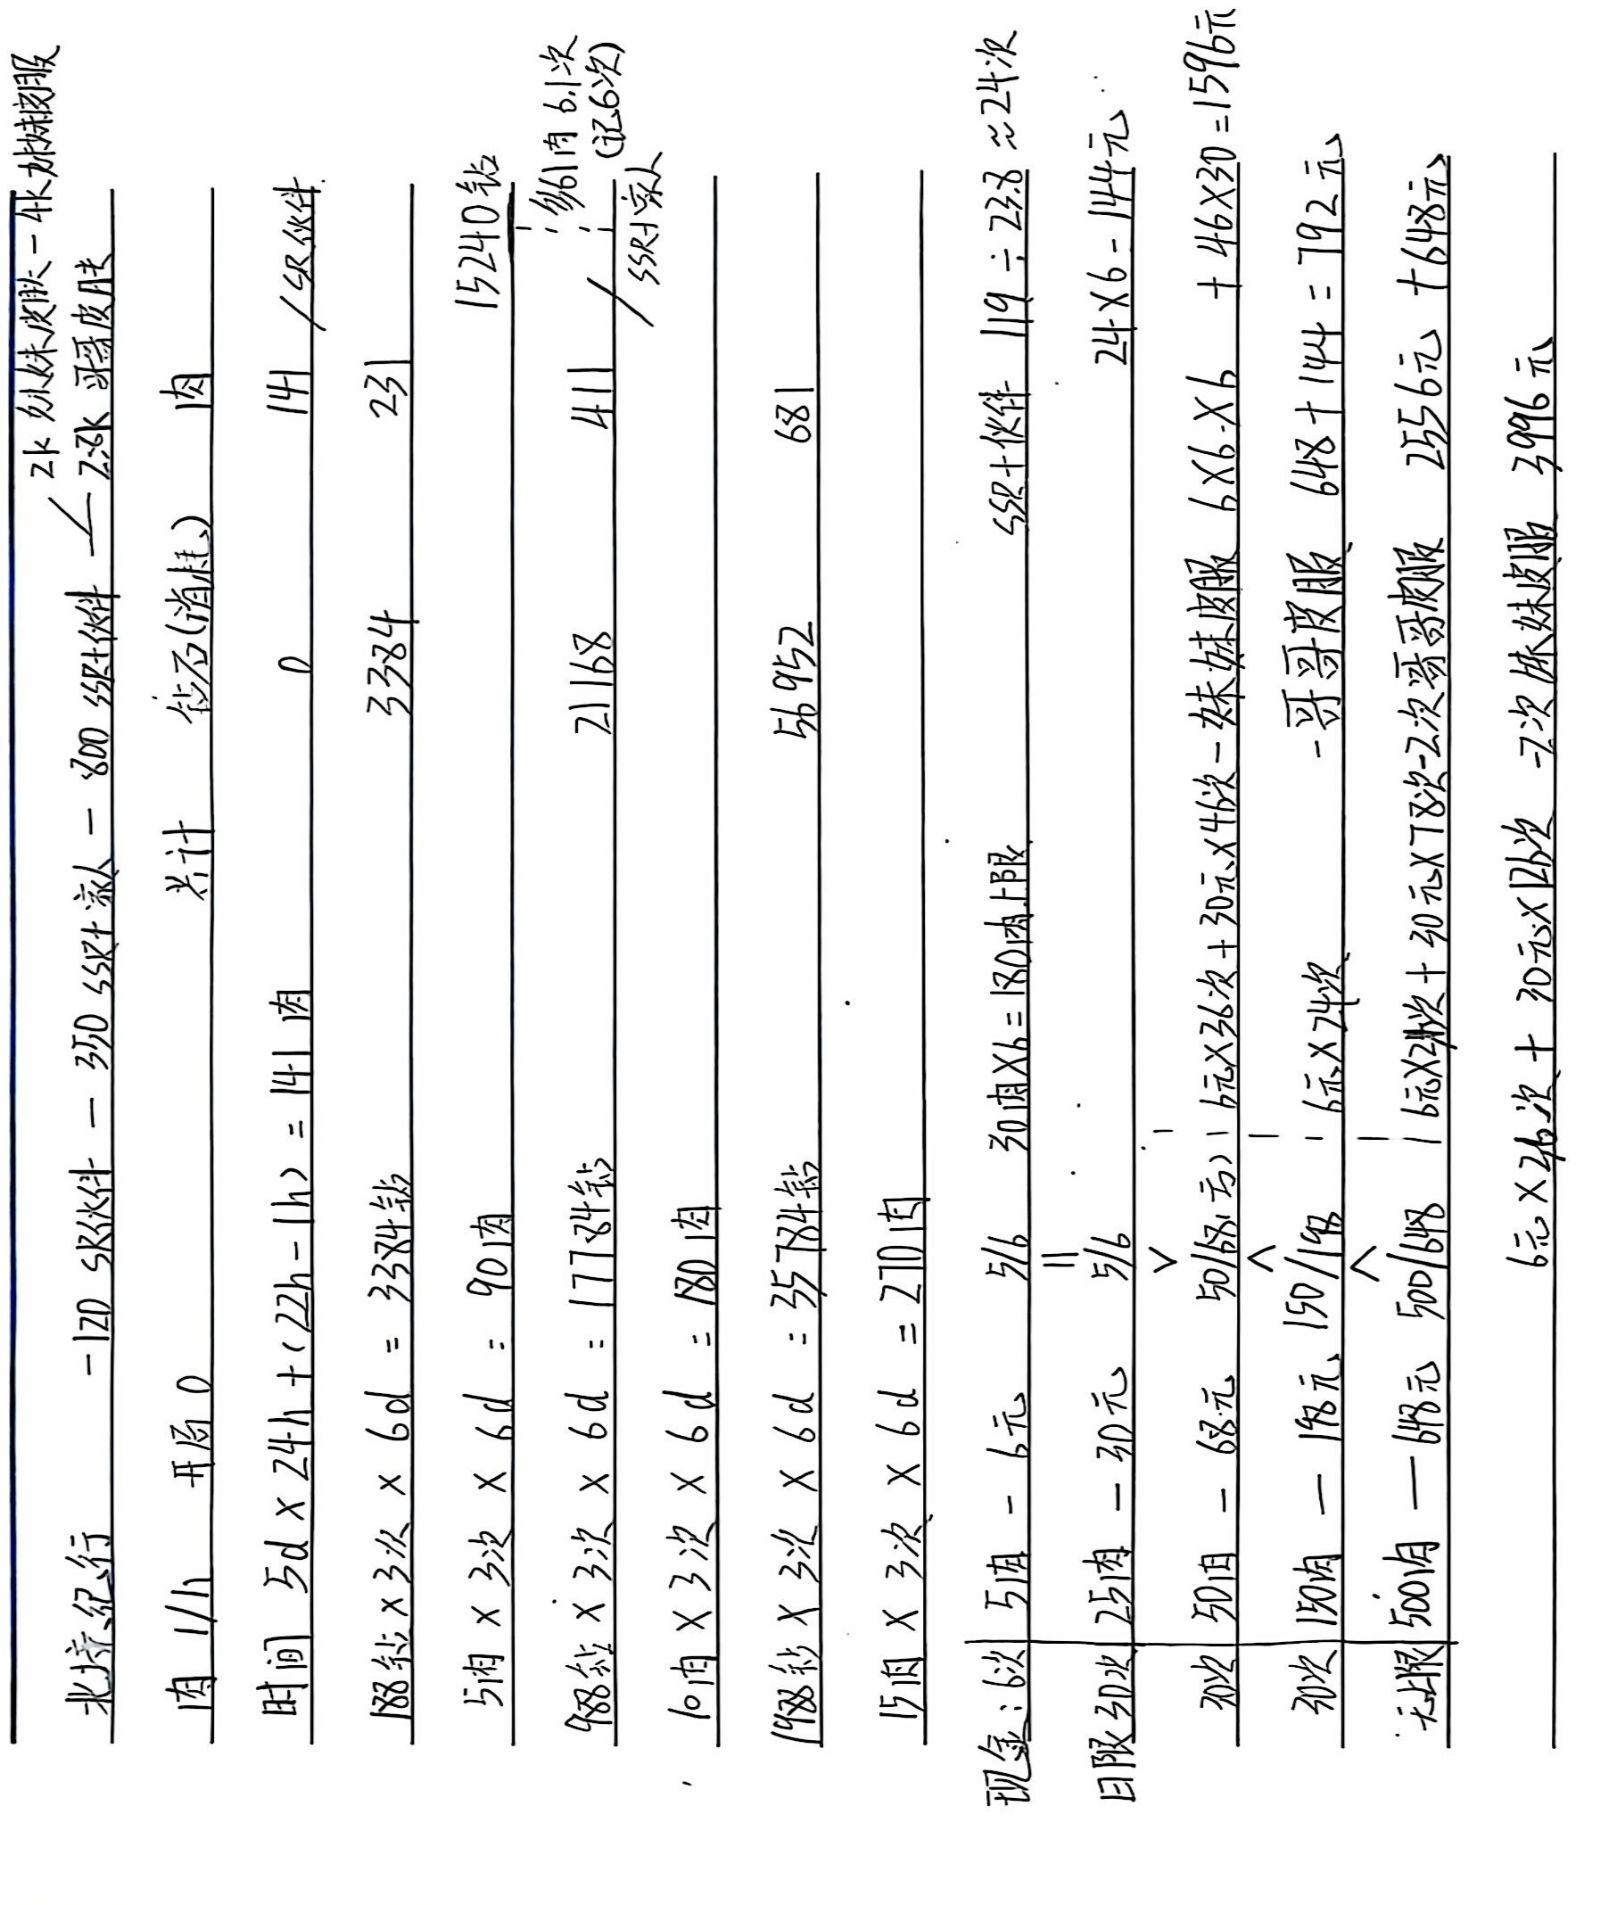 2k 妹妹皮肤-4k妹妹皮服
北境纪行 -120 SR伙件 - 350 SSR+家人 - 800 SSR+伙件 - 2.8k 哥哥皮肤
肉 1/h 开局 0 共计 钻石(消耗) 肉
时间 5d × 24h + (22h-1h) = 141肉 0 141 / SR伙件
188钻 × 3次 × 6d = 3384钻 3384 231
5肉 × 3次 × 6d = 90肉 15240钻
多61肉 6.1次
(记6次)
988钻 × 3次 × 6d = 17784钻 21168 411 / SSR+家人
10肉 × 3次 × 6d = 180肉
1988钻 × 3次 × 6d = 35784钻 56952 681
15肉 × 3次 × 6d = 270肉
现金: 6次 5肉 - 6元 5/6 30肉×6=180肉上限 SSR+伙件 119÷23.8≈24次
=
日限30次 25肉 - 30元 5/6 24×6-144元
>
30次 50肉 - 68元 50/68元 6元×36次+30元×46次-妹妹皮服 6×6×6 +46×30=1596元
<
30次 150肉 - 198元 150/198 6元×24次 -哥哥皮服 648+144=792元
<
无上限 500肉 - 648元 500/648 6元×24次+30元×78次-2次哥哥皮服 2556元 +648元
6元×26次 + 30元×126次 -2次妹妹皮服 3996元